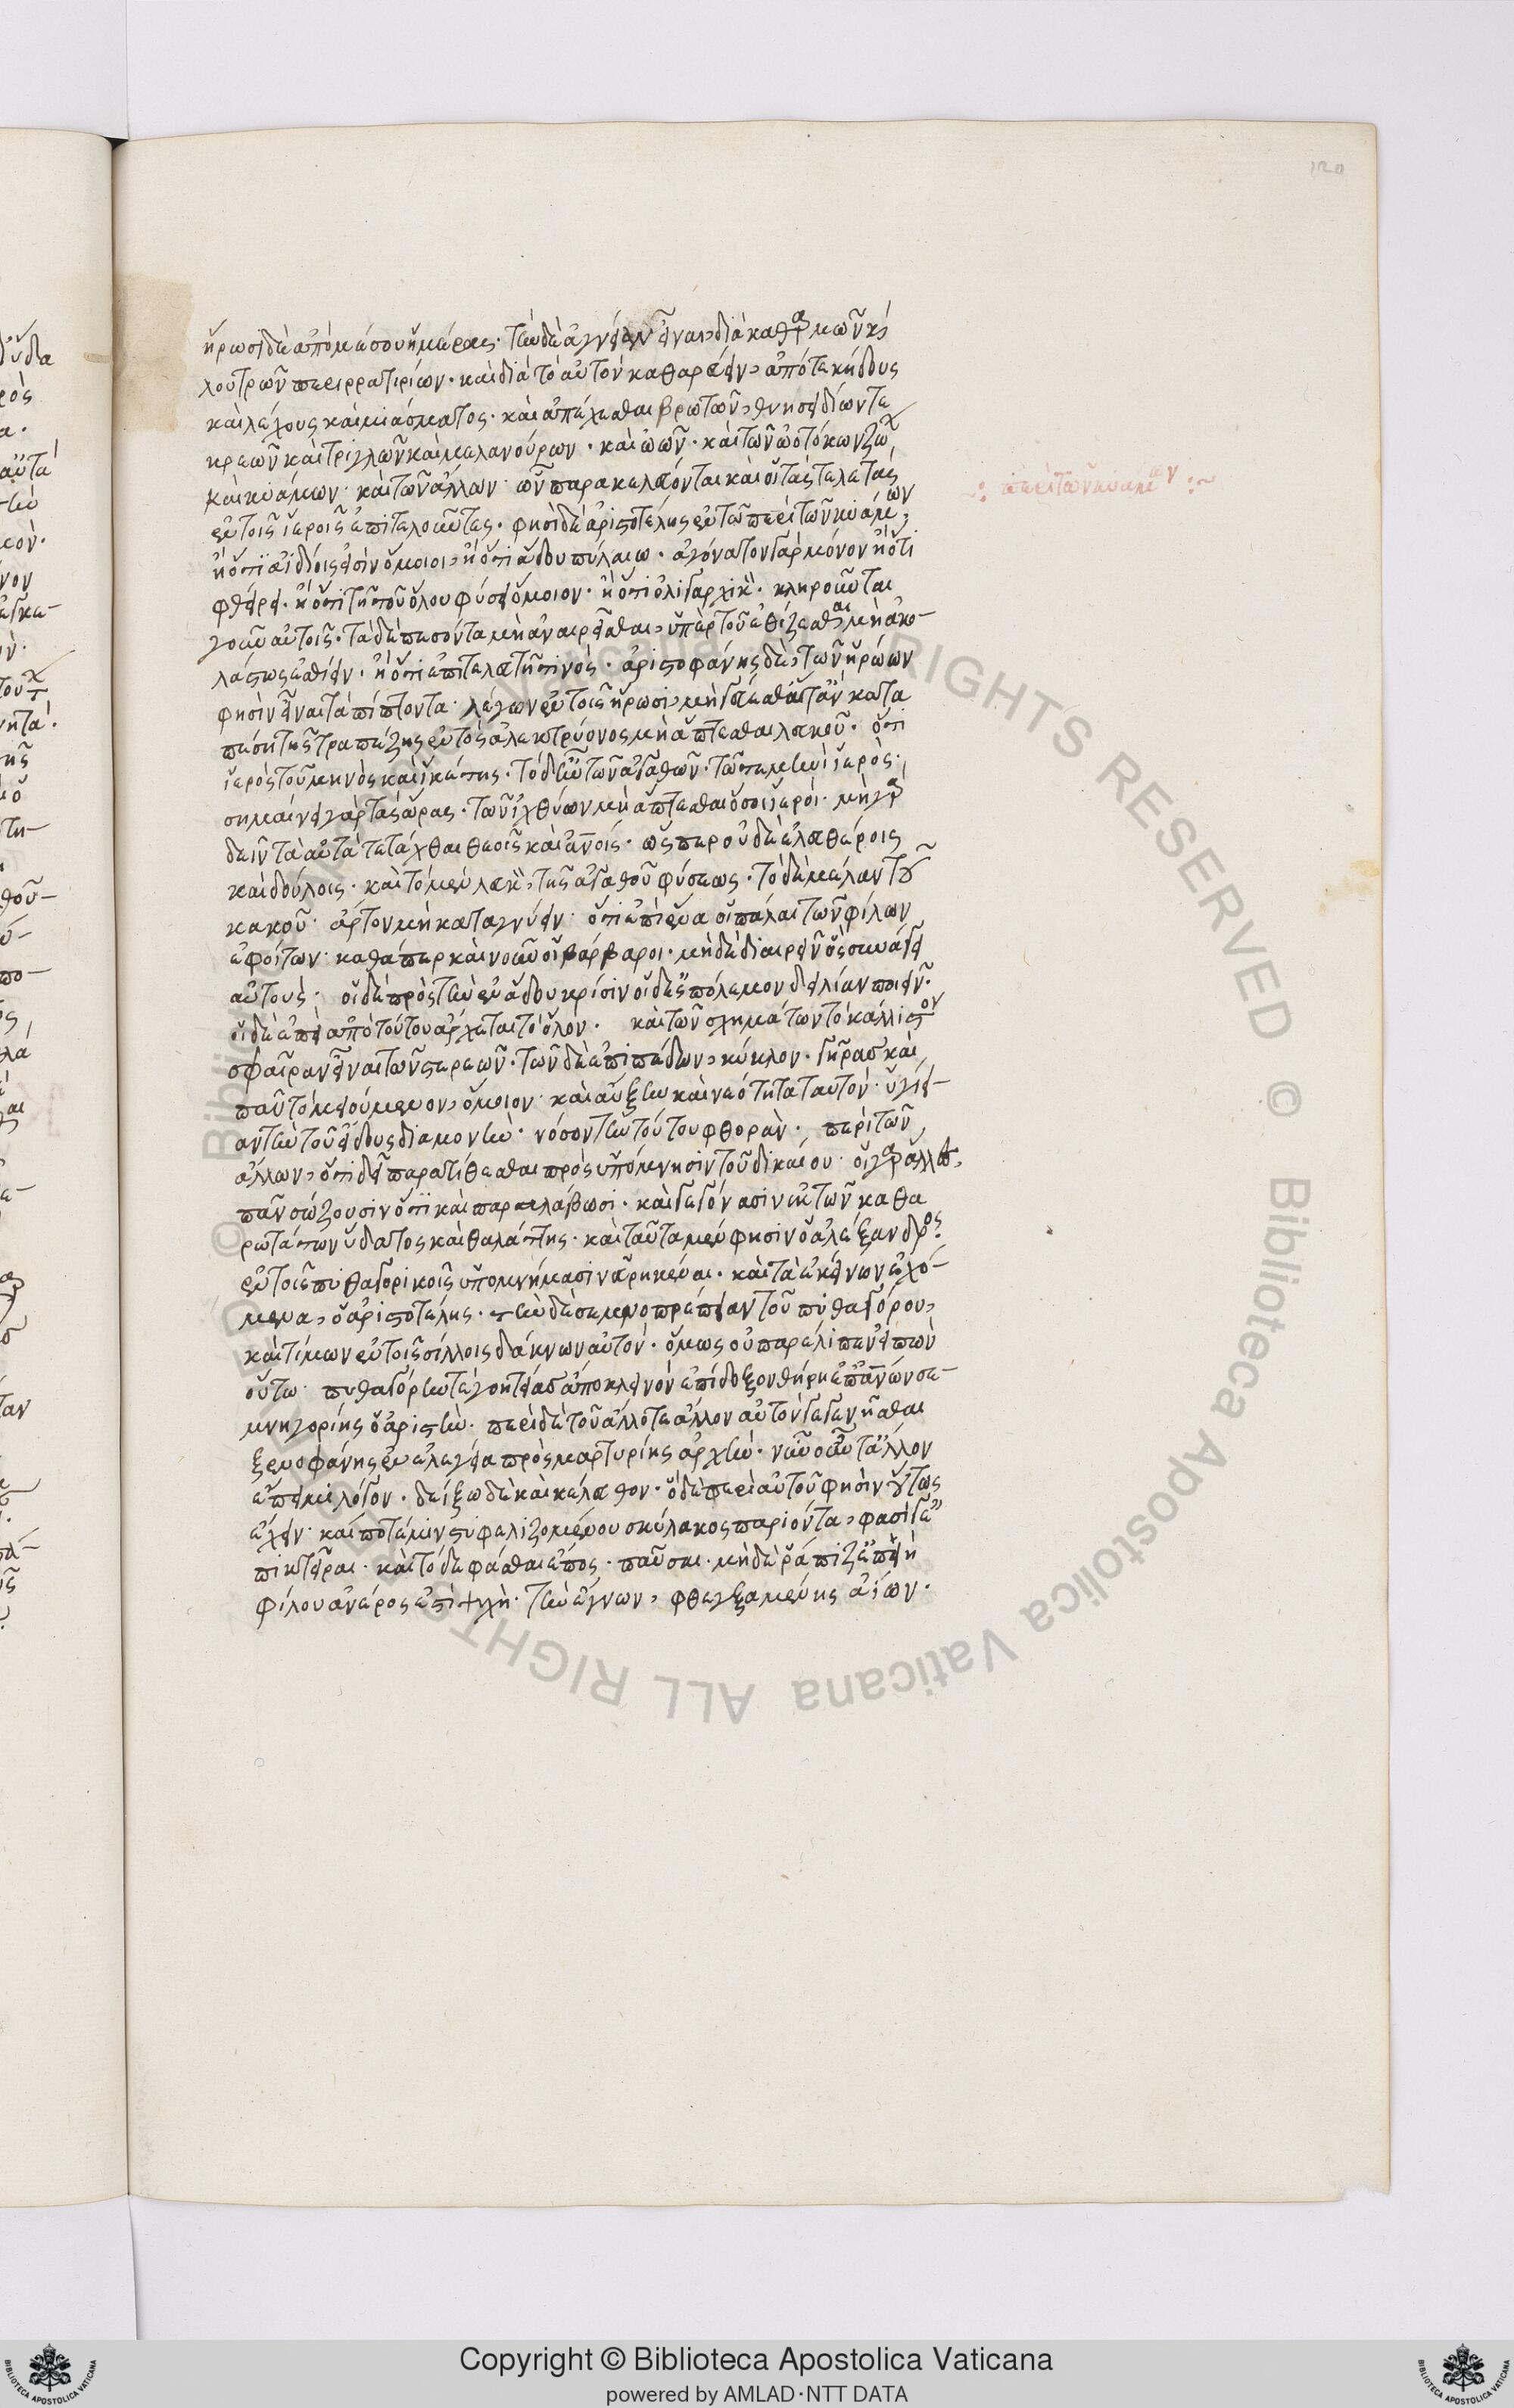 120
ἥρωσι δὲ ἀπὸ μέσου ἡμέρας· τὴν δὲ ἁγνείαν εἶναι, διὰ καθαρμῶν κ(αὶ)
λουτρῶν περιρραντηρίων· καὶ διὰ τὸ αὐτὸν καθαρεύειν, ἀπό τε κήδους
καὶ λέχους καὶ μιάσματος· καὶ ἀπέχεσθαι βρωτῶν, θνησειδίων τε
κρεῶν καὶ τριγλῶν καὶ μελανούρων· καὶ ὠῶν· καὶ τῶν ὠοτόκων ζώ(ων)
καὶ κυάμων· καὶ τῶν ἄλλων· ὧν παρακελεύονται καὶ οἱ τὰς τελετὰς
ἐν τοῖς ἱεροῖς ἐπιτελοῦντες· φησὶ δὲ ἀριστοτέλης ἐν τῶ περὶ τῶν κυάμων,
ἢ ὅτι αἰδοίοις εἰσὶν ὅμοιοι, ἢ ὅτι ἅδου πύλαις· ἀγόνατον γὰρ μόνον ἢ ὅτι
φθείρει· ἢ ὅτι τῆ τοῦ ὅλου φύσει ὅμοιον· ἢ ὅτι ὀλιγαρχικ(όν)· κληροῦνται
γοῦν αὐτοῖς· τὰ δὲ πεσόντα μὴ ἀναιρεῖσθαι, ὑπὲρ τοῦ ἐθίζεσθαι μὴ ἀκο-
λάστως ἐσθίειν· ἢ ὅτι ἐπὶ τελευτῆ τινός· ἀριστοφάνης δὲ, τῶν ἡρώων
φησὶν εἶναι τὰ πίπτοντα· λέγων ἐν τοῖς ἥρωσι, μὴ γεύεσθαι ἃ τ' ἂν κατα
πέση τῆς τραπέζης ἐντός ἀλεκτρύονος μὴ ἅπτεσθαι λευκοῦ· ὅτι
ἱερὸς τοῦ μηνὸς καὶ ἱκέτης· τὸ δ' ἦν τῶν ἀγαθῶν· τῶ τε μηνὶ ἱερός·
σημαίνει γὰρ τὰς ὥρας· τῶν ἰχθύων μὴ ἅπτεσθαι ὅσοι ἱεροί· μὴ γὰρ
δεῖν τὰ αὐτὰ τετάχθαι θεοῖς καὶ ἀν(θρώπ)οις· ὥσπερ οὐδὲ ἐλευθέροις
καὶ δούλοις· καὶ τὸ μὲν λευκ(ὸν), τῆς ἀγαθοῦ φύσεως· τὸ δὲ μέλαν τοῦ
κακοῦ· ἄρτον μὴ καταγνύειν· ὅτι ἐπὶ ἕνα οἱ πάλαι τῶν φίλων
ἐφοίτων· καθάπερ καὶ νῦν οἱ βάρβαροι· μὴ δὲ διαιρεῖν ὃς συνάγει
αὐτούς· οἱ δὲ πρὸς τὴν ἐν ἅδου κρίσιν οἱ δὲ εἰς πόλεμον δειλίαν ποιεῖν·
οἱ δὲ ἐπεὶ ἀπὸ τούτου ἄρχεται τὸ ὅλον· καὶ τῶν σχημάτων τὸ κάλλιστον
σφαῖραν εἶναι τῶν στερεῶν· τῶν δὲ ἐπιπέδων, κύκλον· γῆρας καὶ
πᾶν τὸ μειούμενον, ὅμοιον· καὶ αὔξην καὶ νεότητα ταυτόν· ὑγίει-
αν τὴν τοῦ εἴδους διαμονήν· νόσον τὴν τούτου φθοράν· περὶ τῶν
ἁλλῶν, ὅτι δεῖ παρατίθεσθαι πρὸς ὑπόμνησιν τοῦ δικαίου· οἱ γὰρ ἅλλες
πᾶν σώζουσιν ὅ τι καὶ παραλάβωσι· καὶ γεγόνασιν ἐκ τῶν καθα
ρωτάτων ὕδατος καὶ θαλάττης· καὶ ταῦτα μέν φησιν ὁ ἀλέξανδρος
ἐν τοῖς πυθαγορικοῖς ὑπομνήμασιν εὑρηκέναι· καὶ τὰ ἐκείνων ἐχό-
μενα, ὁ ἀριστοτέλης· τὴν δὲ σεμνοπρέπειαν τοῦ πυθαγόρου,
καὶ τίμων ἐν τοῖς σίλλοις δάκνων αὐτόν· ὅμως οὐ παρέλιπεν εἰπὼν
οὕτω· πυθαγόρην τε γοητείας ἀποκλεινὸν ἐπίδοξον θήρη ἐπ' ἀν(θρώπ)ων σε-
μνηγορίης ὀαριστήν· περὶ δὲ τοῦ ἄλλοτε ἄλλον αὐτὸν γεγενῆσθαι
ξενοφάνης ἐν ἐλεγεία προσμαρτυρεῖ ἧς ἀρχήν· νῦν οὖν τ' ἄλλον
ἔπειμι λόγον· δείξω δὲ καὶ κέλευθον· ὃ δὲ περὶ αὐτοῦ φησὶν οὕτως
ἔχει· καί ποτέ μιν στυφελιζομένου σκύλακος παριόντα, φασί γ' ἐ-
ποικτεῖραι· καὶ τόδε φάσθαι ἔπος· παῦσαι· μὴ δὲ ῥάπιζ' ἐπειὴ
φίλου ἀνέρος ἐστὶ ψυχή· τὴν ἔγνων, φθεγξαμένης ἀίων·
περὶ τῶν κυάμων